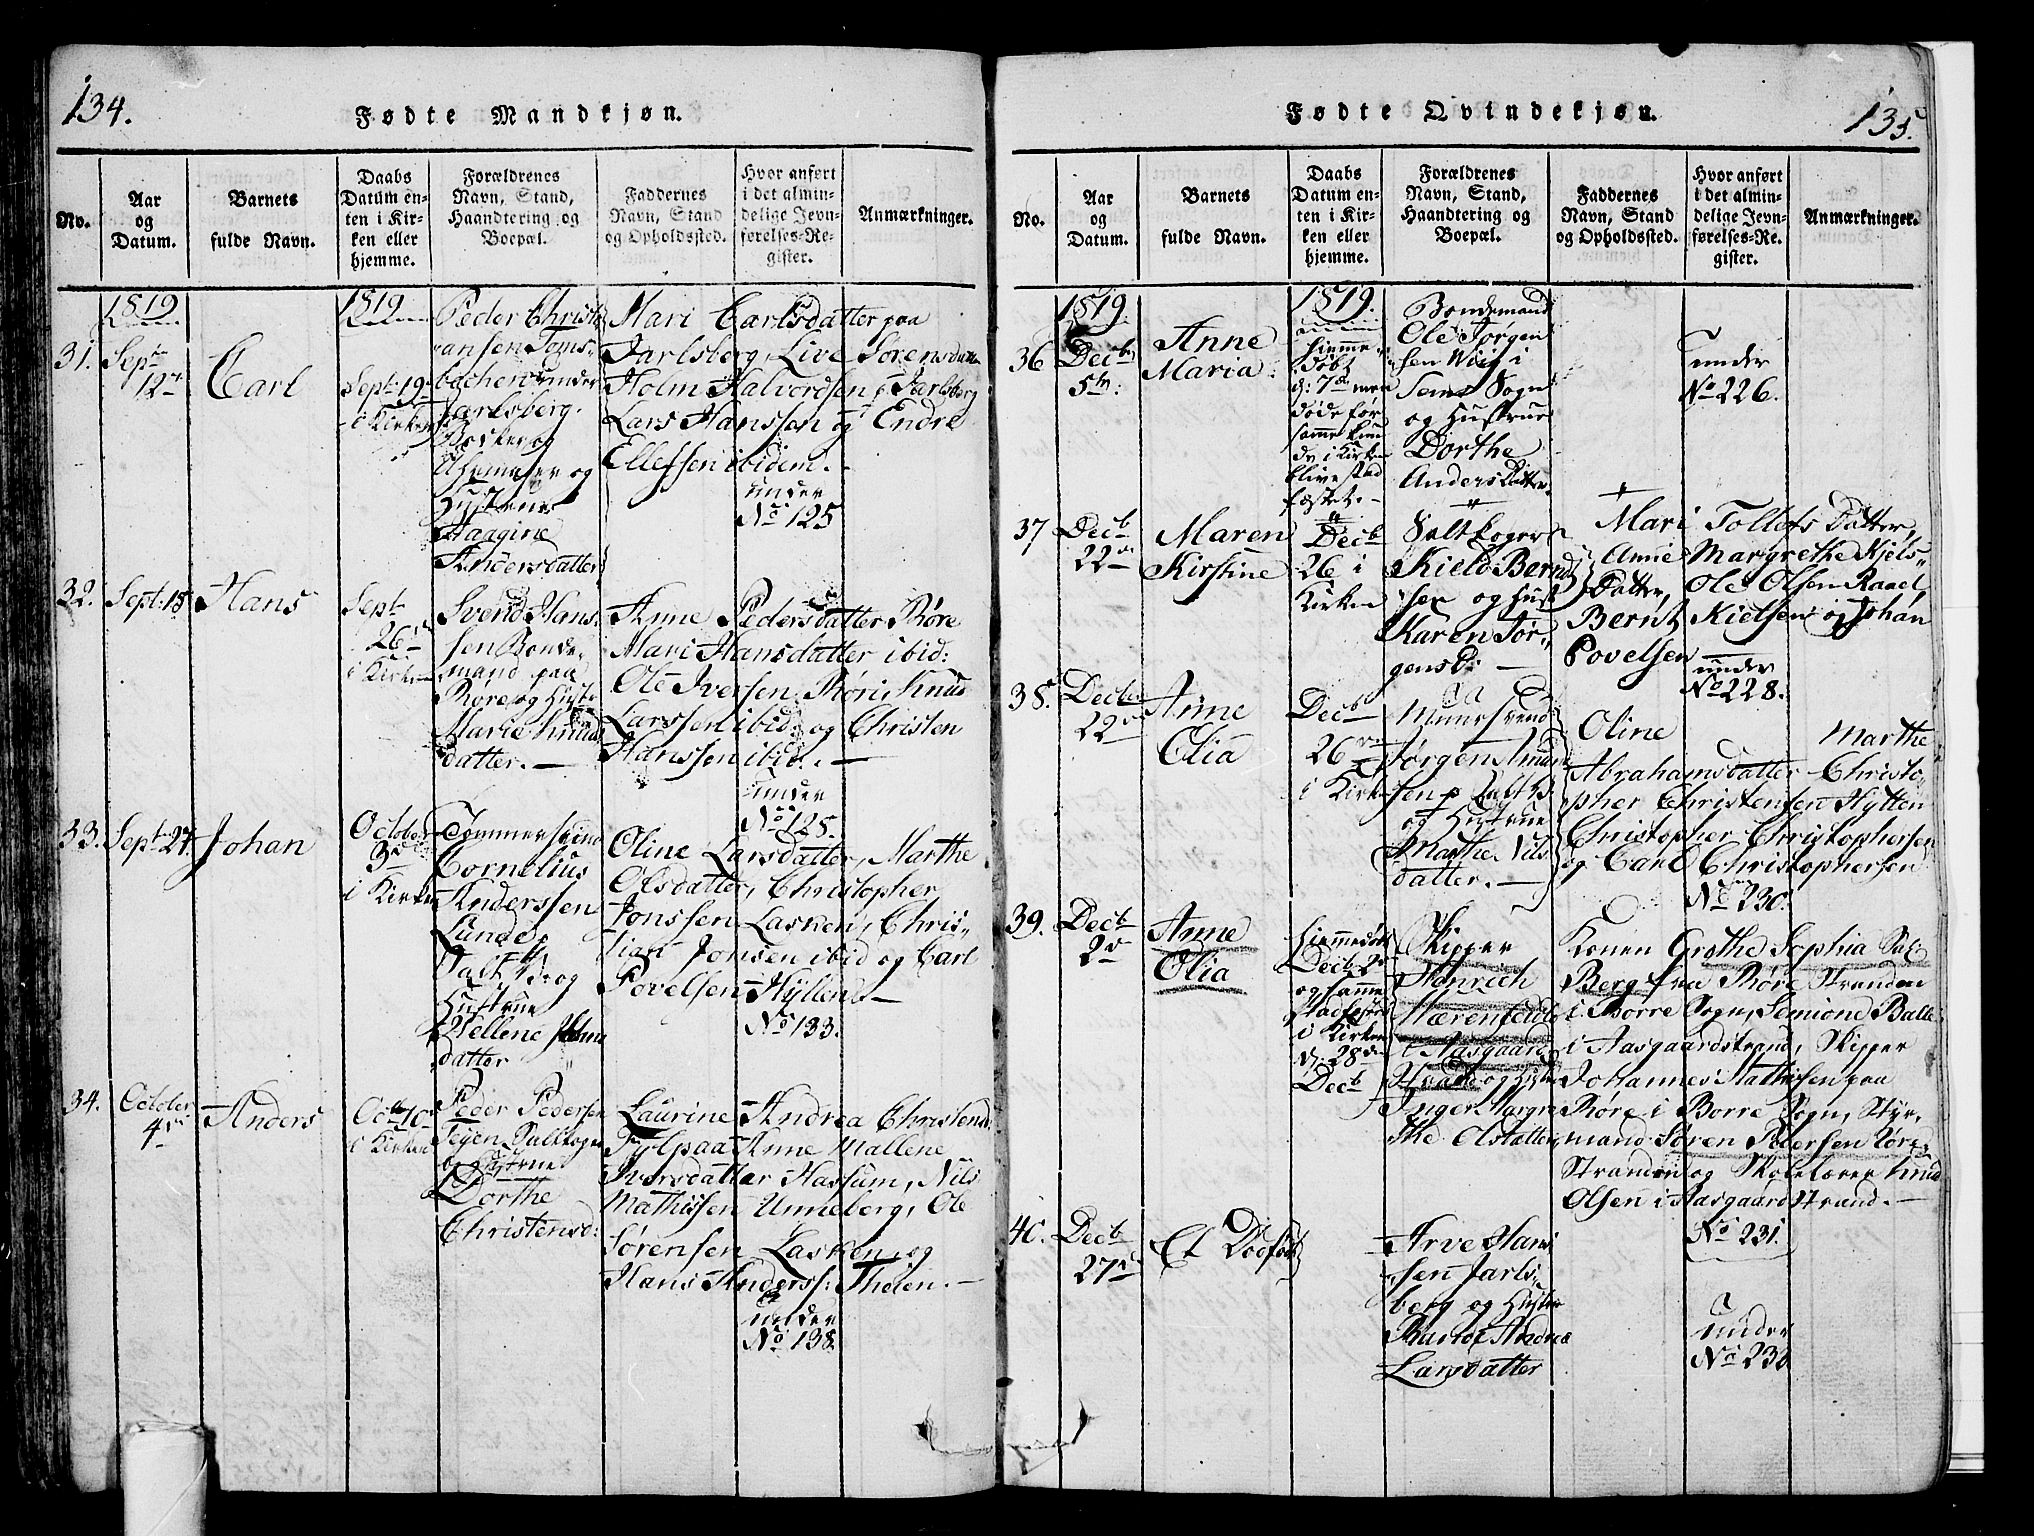 134.
Fødte Mandkjøn.
No.
Aar
og
Datum.
Barnets
fulde Navn.
Daabs
Datum en-
ten i Kir-
ken eller
hjemme.
Forældrenes
Navn, Stand,
Haandtering og
Boepæl.
Faddernes
Navn, Stand
og Opholdssted.
Hvor anført
i det almin-
delige Jevn-
førelses-Re-
gister.
Anmærkninger.
1819
31. Sept
12te
Carl
1819.
Sept: 19
i Kirken
Peder Christi
ansen Toms-
bachen under
Jarlsberg.
og
Hustrue
Aagine
Andersdatter
Mari Carlsdatter paa
Jarlsberg, Live Sørensdatter
Holm Halvordsen, Jarlsberg
Lars Hanssen og Endre
Ellefsen ibidem.
under
No 125
32. Sept: 15
Hans
Sept
26
i Kirken
Svend Hans-
sen Bonde-
mand paa
Røre og Hustr
Marie Knuds
datter. —
Anne Pedersdatter Røre
Mari Hansdatter ibid:
Ole Iversen Røri Knud
Larssen ibid: og Christen
Hanssen ibid. —
under
No 125.
33. Sept: 27
Johan
October
3d
i Kirken
Cornelius
Anderssen
Lunde
og
Hustrue
Hellene
datter
Oline Larsdatter, Marthe
Olsdatter, Christopher
Jonssen Lasken, Chris-
tian Jonsen ibid og Carl
Povelsen Hyllen —
No 133.
34. October
4
Anders
Octb 10
i Kirken
Peder Pedersen
Teyen Saltkoger
og Hustrue
Dorthe
Christensd:
Laurine Andrea Christensd:
Anne Mallene
Iversdatter Hassum, Nils
Mathissen Unneberg, Ole
Sørensen Lasken, og
Hans Anderss: Theien. —
under
No 138
135.
Fødte Qvindekjøn.
No.
Aar
og
Datum.
Barnets
fulde Navn.
Daabs
Datum en-
ten i Kir-
ken eller
hjemme.
Forældrenes
Navn, Stand,
Haandtering og
Boepæl.
Faddernes
Navn, Stand
og Opholdssted.
Hvor anført
i det almin-
delige Jevn-
førelses-Re-
gister.
Anmærkninger.
1819.
36 Decbr
5te:
Anne
Maria
1819.
hjemme-
døbt
d: 7de men
døde før
samme kun
de i Kirken
blive stad
fæstet. —
Bondemand
Ole Jørgen
sen Wiig i
Sems Sogn
og Hustrue
Dorthe
Andersdatter.
under
No 226.
37 Decb
22
Maren
Kirstine
Decb
26 i
Kirken
Saltkoger
Kield Bernd
sen og Hust
Karen Jør-
gensD: —
Mari Tollefs Datter,
Anne Margrethe Kjels-
Datter, Ole Olsen Raael
Bernt Kielsen og Johan
Povelsen
under
No 228.
38. Decbr
22
Anne
Olia
Decb
26
i Kirken
Muursvend
Jørgen Amund
sen p. Saltv.
og Hustrue
Marthe Nils
datter. —
Oline Marthe
Abrahamsdatter Christo-
pher Christensen Hytten
Christopher Christophersen
og Carl Christophersen
No 230.
39. Decb
2
Anne
Olia
hjemmedøbt
Decb 2
og samme
stadfæstet
i Kirken
d: 28de
Decb
Skipper
Henrich
Værenfeldt
i Aasgaard
strand og Hustr
Inger Margre
the Olsdatter
Konen Grethe Sophia Sel
Berg fra Røre Stranden
i Borre Sogn, Semione Balle
i Aasgaardstrand, Skipper
Johannes Mathisen paa
Røre i Borre Sogn, Styr-
mand Søren Pedersen Røre-
Stranden og Skolelærer Knud
Olsen i Aasgaardstrand. —
No 231.
40. Decb
27
Et Dødfød
Arve Hans
sen Jarls-
berg og Hustru
Andrea
Larsdatter
under
No 236